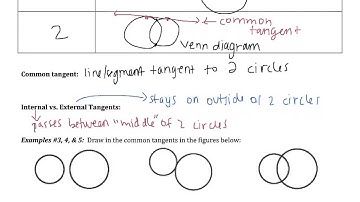 common
tangent
2
Venn diagram
Common tangent: line/segment tangent to 2 circles
stays on outside of 2 circles
Internal vs. External Tangents:
passes between "middle" of 2 circles
Examples #3, 4, & 5: Draw in the common tangents in the figures below: